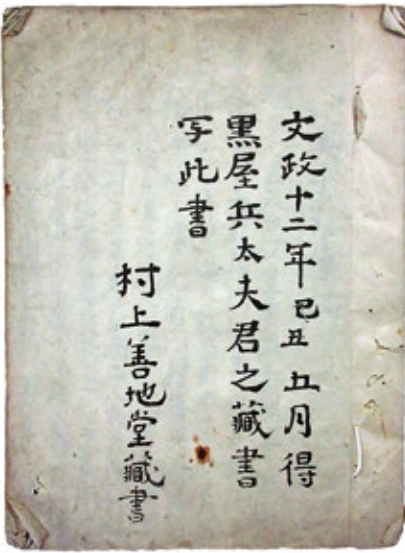 文政十二年己丑五月得
黒屋兵太夫君之蔵書
写此書
村上善地堂蔵書